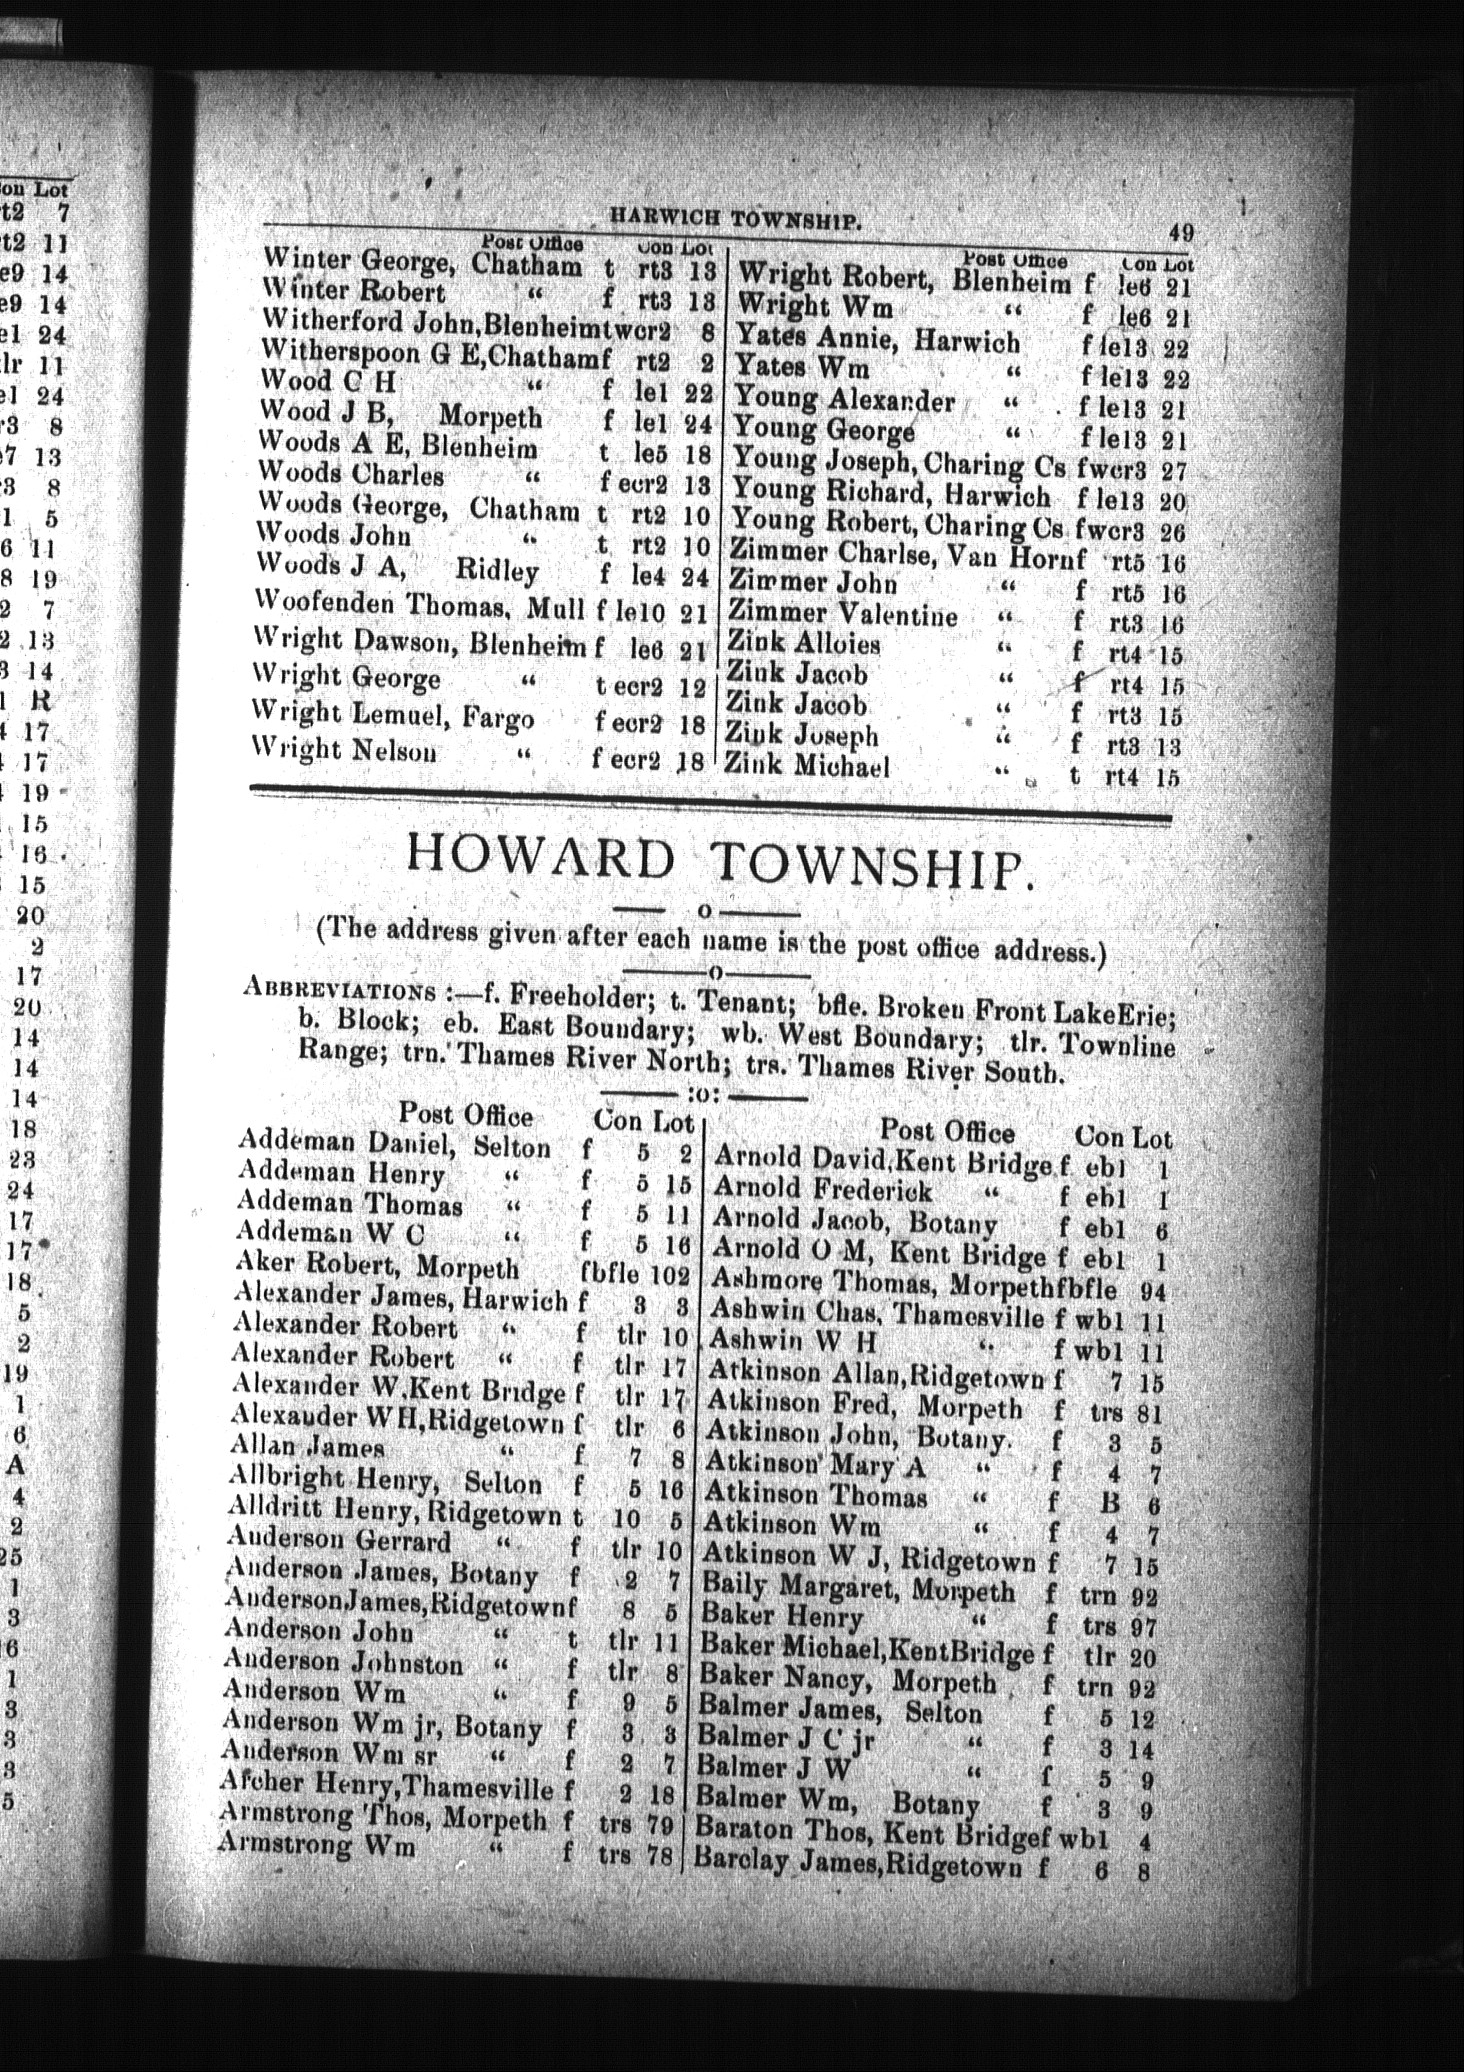 on Lot
t2 7
t2 11
e9 14
e9 14
el 24
lr 11
el 24
r3 8
e7 13
r3 8
1 5
6 11
8 19
2 7
2 13
3 14
1 R
4 17
17
19
15
16
15
20
2
17
20
14
14
14
18
23
24
17
17
18
5
2
19
1
6
A
4
2
25
1
3
6
1
3
3
3
5
HARWICH TOWNSHIP. 49
Post Office Con Lot
Winter George, Chatham t rt3 13
Winter Robert “ f rt3 13
Witherford John,Blenheimtwcr2 8
Witherspoon G E,Chathamf rt2 2
Wood C H “ f le1 22
Wood J B, Morpeth f le1 24
Woods A E, Blenheim t le5 18
Woods Charles “ f ecr2 13
Woods George, Chatham t rt2 10
Woods John “ t rt2 10
Woods J A, Ridley f le4 24
Woofenden Thomas, Mull f le10 21
Wright Dawson, Blenheim f le6 21
Wright George “ t ecr2 12
Wright Lemuel, Fargo f ecr2 18
Wright Nelson “ f ecr2 18
Post Office Con Lot
Wright Robert, Blenheim f le6 21
Wright Wm “ f le6 21
Yates Annie, Harwich f le13 22
Yates Wm “ f le13 22
Young Alexander “ f le13 21
Young George “ f le13 21
Young Joseph, Charing Cs fwcr3 27
Young Richard, Harwich f le13 20
Young Robert, Charing Cs fwcr3 26
Zimmer Charlse, Van Hornf rt5 16
Zimmer John “ f rt5 16
Zimmer Valentine “ f rt3 16
Zink Alloies “ f rt4 15
Zink Jacob “ f rt4 15
Zink Jacob “ f rt3 15
Zink Joseph “ f rt3 13
Zink Michael “ t rt4 15
HOWARD TOWNSHIP.
o
(The address given after each name is the post office address.)
o
ABBREVIATIONS :—f. Freeholder; t. Tenant; bfle. Broken Front LakeErie;
b. Block; eb. East Boundary; wb. West Boundary; tlr. Townline
Range; trn. Thames River North; trs. Thames River South.
:o:
Post Office Con Lot
Addeman Daniel, Selton f 5 2
Addeman Henry “ f 5 15
Addeman Thomas “ f 5 11
Addeman W C “ f 5 16
Aker Robert, Morpeth fbfle 102
Alexander James, Harwich f 3 3
Alexander Robert “ f tlr 10
Alexander Robert “ f tlr 17
Alexander W,Kent Bridge f tlr 17
Alexander WH,Ridgetown f tlr 6
Allan James “ f 7 8
Allbright Henry, Selton f 5 16
Alldritt Henry, Ridgetown t 10 5
Anderson Gerrard “ f tlr 10
Anderson James, Botany f 2 7
AndersonJames,Ridgetownf 8 5
Anderson John “ t tlr 11
Anderson Johnston “ f tlr 8
Anderson Wm “ f 9 5
Anderson Wm jr, Botany f 3 3
Anderson Wm sr “ f 2 7
Archer Henry,Thamesville f 2 18
Armstrong Thos, Morpeth f trs 79
Armstrong Wm “ f trs 78
Post Office Con Lot
Arnold David,Kent Bridge f eb1 1
Arnold Frederick “ f eb1 1
Arnold Jacob, Botany f eb1 6
Arnold O M, Kent Bridge f eb1 1
Ashmore Thomas, Morpethfbfle 94
Ashwin Chas, Thamesville f wb1 11
Ashwin W H “ f wb1 11
Atkinson Allan,Ridgetown f 7 15
Atkinson Fred, Morpeth f trs 81
Atkinson John, Botany f 3 5
Atkinson Mary A “ f 4 7
Atkinson Thomas “ f B 6
Atkinson Wm “ f 4 7
Atkinson W J, Ridgetown f 7 15
Baily Margaret, Morpeth f trn 92
Baker Henry “ f trs 97
Baker Michael,KentBridge f tlr 20
Baker Nancy, Morpeth f trn 92
Balmer James, Selton f 5 12
Balmer J C jr “ f 3 14
Balmer J W “ f 5 9
Balmer Wm, Botany f 3 9
Baraton Thos, Kent Bridgef wb1 4
Barclay James,Ridgetown f 6 8